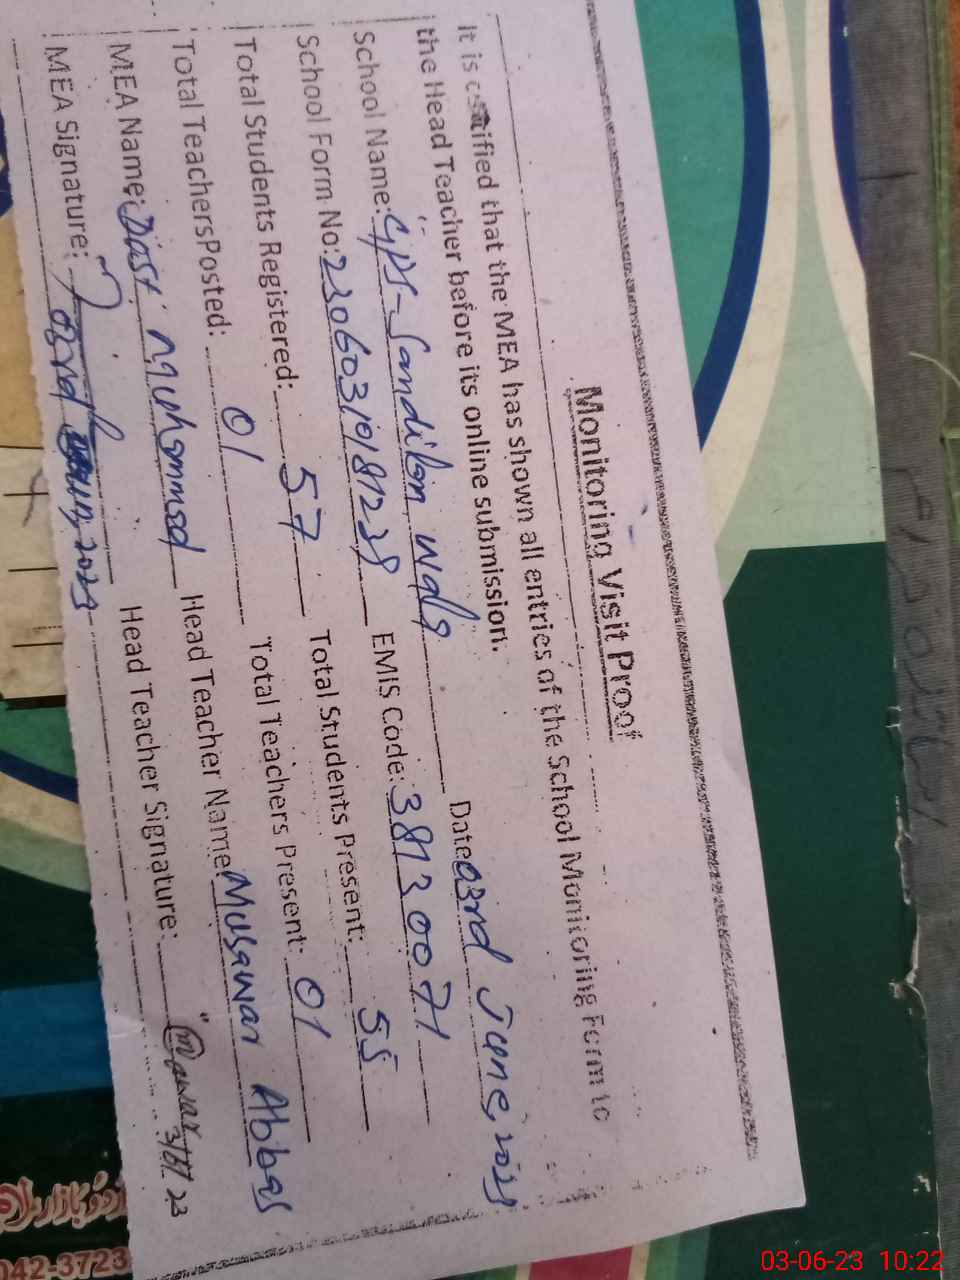 Monitoring Visit Proof
It is certified that the MEA has shown all entries of the School Monitoring Form to
the Head Teacher before its online submission.
School Name: GPS-Sandilan wala Date: 03rd June, 2023
School Form No: 23060310181238 EMIS Code: 38130071
Total Students Registered: 57 Total Students Present: 55
Total TeachersPosted: 01 Total Teachers Present: 01
MEA Name: Dost Muhammad Head Teacher Name: Musawar Abbas
MEA Signature: 03rd 2023 Head Teacher Signature:
اردو بازار
042-3723
03-06-23 10:22